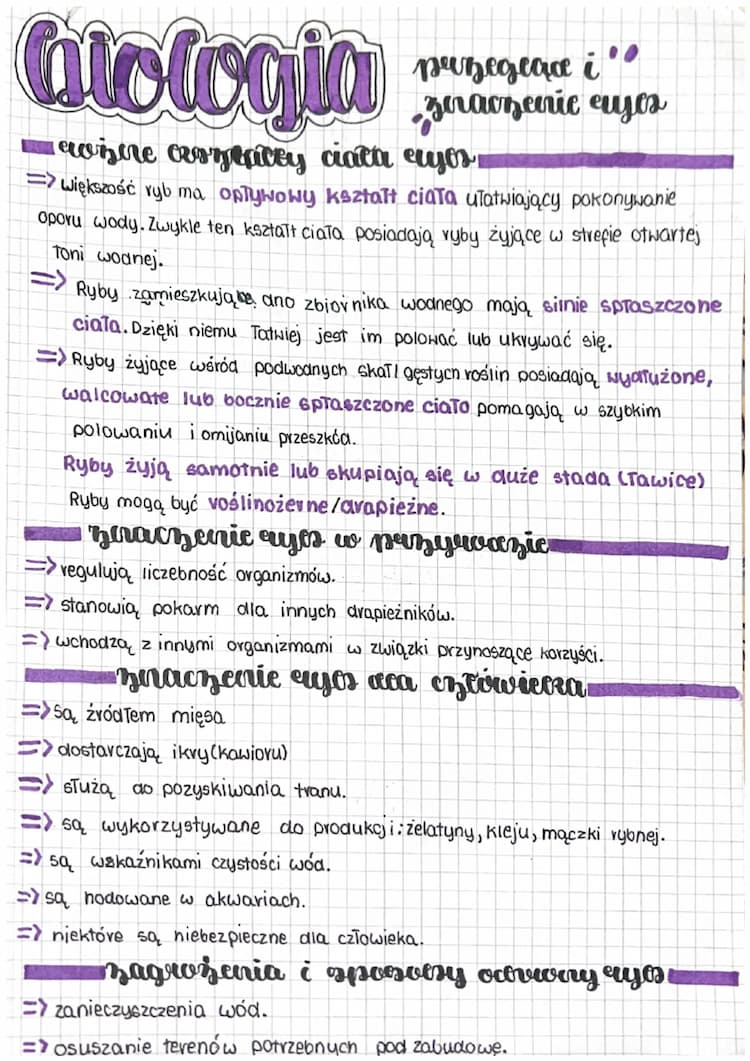 biologia
przegląd i
znaczenie ryb
różne kształty ciała ryb
=> Większość ryb ma opływowy kształt ciała ułatwiający pokonywanie
oporu wody. Zwykle ten kształt ciała posiadają ryby żyjące w strefie otwartej
toni wodnej.
=> Ryby zamieszkujące dno zbiornika wodnego mają silnie spłaszczone
ciała. Dzięki niemu łatwiej jest im polować lub ukrywać się.
=> Ryby żyjące wśród podwodnych skał i gęstych roślin posiadają wydłużone,
walcowate lub bocznie spłaszczone ciało pomagają w szybkim
polowaniu i omijaniu przeszkód.
Ryby żyją samotnie lub skupiają się w duże stada (ławice)
Ryby mogą być roślinożerne/drapieżne.
znaczenie ryb w przyrodzie
=> regulują liczebność organizmów.
=> stanowią pokarm dla innych drapieżników.
=> wchodzą z innymi organizmami w związki przynoszące korzyści.
znaczenie ryb dla człowieka
=> są źródłem mięsa
=> dostarczają ikry (kawioru)
=> służą do pozyskiwania tranu.
=> są wykorzystywane do produkcji: żelatyny, kleju, mączki rybnej.
=> są wskaźnikami czystości wód.
=> są hodowane w akwariach.
=> niektóre są niebezpieczne dla człowieka.
zagrożenia i sposoby ochrony ryb
=> zanieczyszczenia wód.
=> osuszanie terenów potrzebnych pod zabudowę.